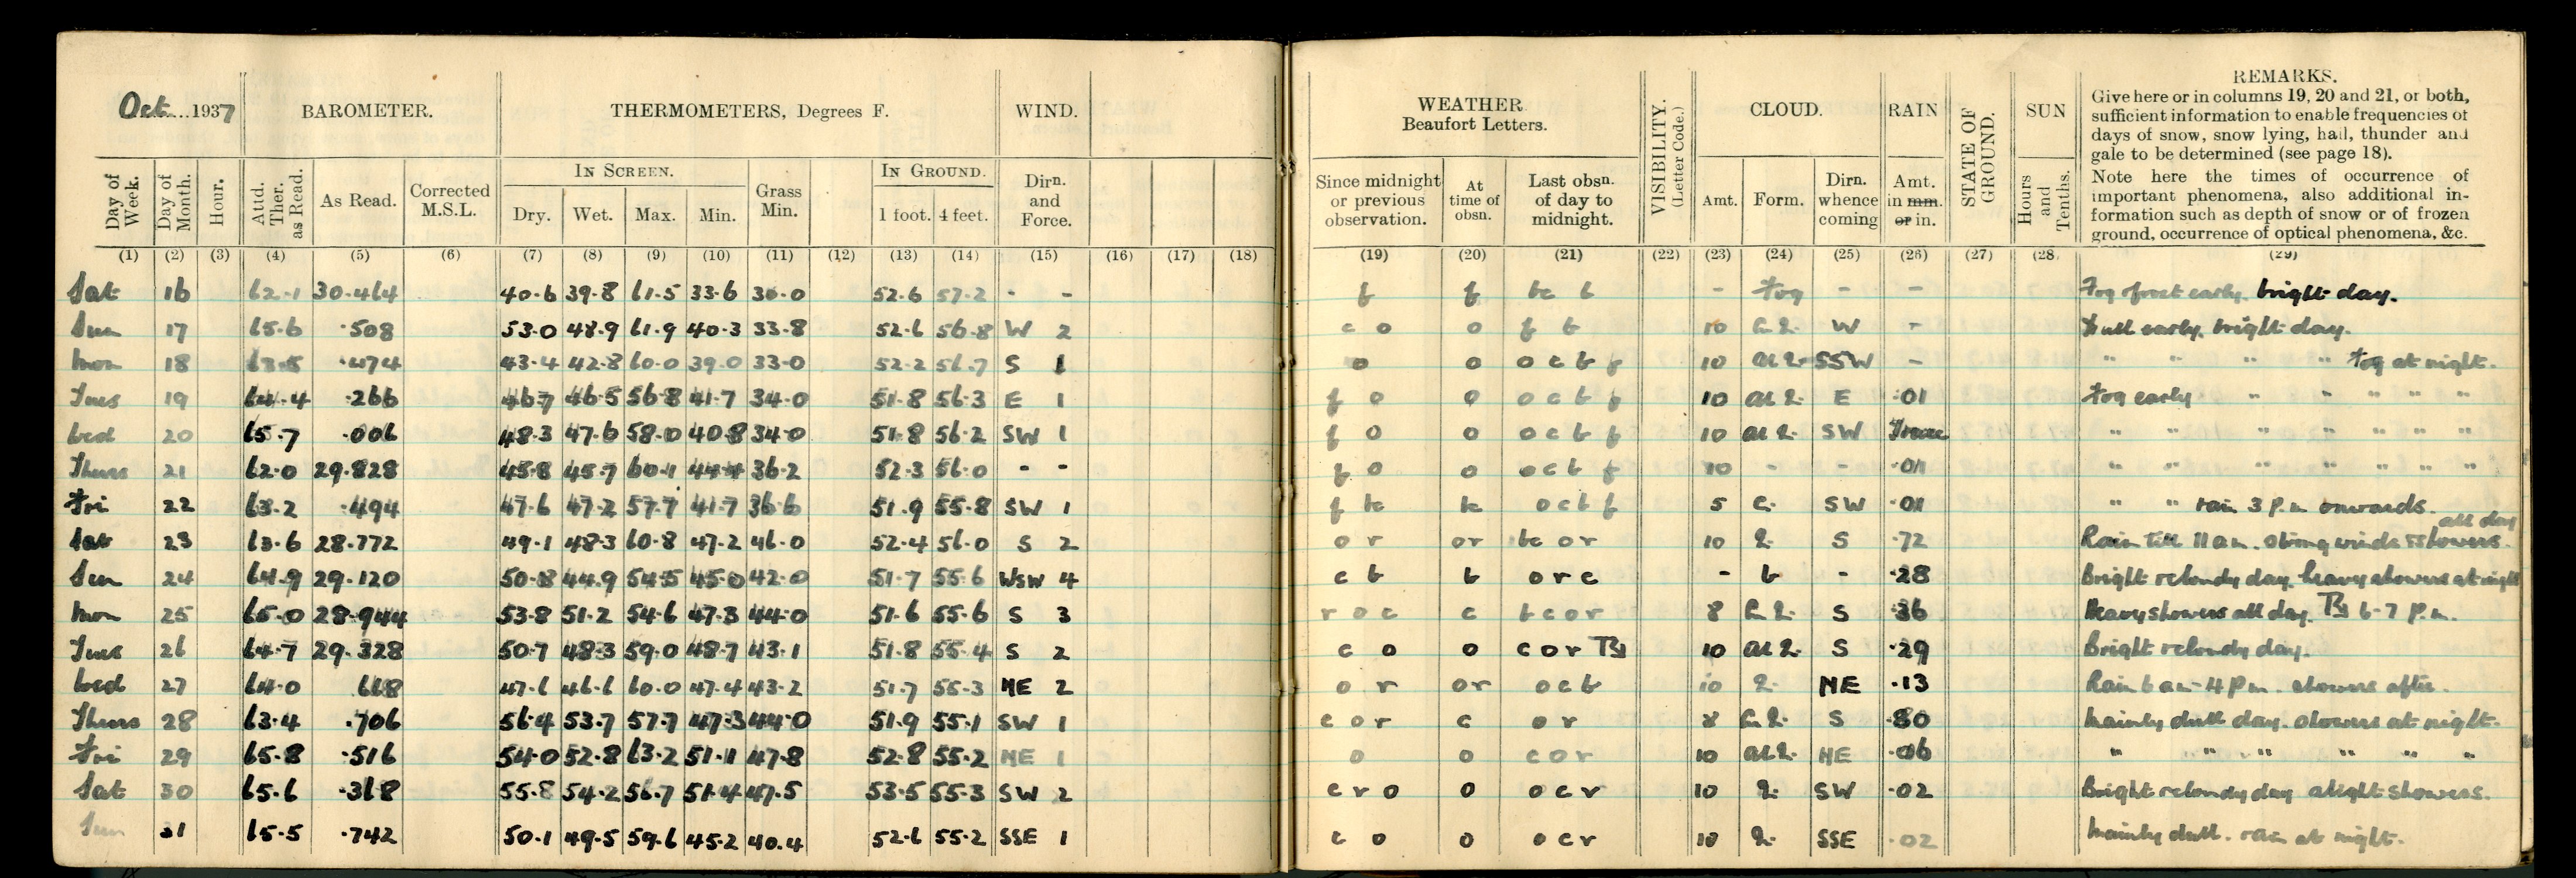 Oct. 1937
BAROMETER.
THERMOMETERS, Degrees F.
WIND.
WEATHER
Beaufort Letters.
VISIBILITY.
(Letter Code.)
CLOUD.
RAIN
STATE OF
GROUND.
SUN
REMARKS.
Give here or in columns 19, 20 and 21, or both,
sufficient information to enable frequencies of
days of snow, snow lying, hail, thunder and
gale to be determined (see page 18).
Note here the times of occurrence of
important phenomena, also additional in-
formation such as depth of snow or of frozen
ground, occurrence of optical phenomena, &c.
Day of Week.
Day of Month.
Hour.
Attd. Ther. as Read.
As Read.
Corrected M.S.L.
IN SCREEN.
Dry. Wet. Max. Min.
Grass Min.
IN GROUND.
1 foot. 4 feet.
Dirn. and Force.
Since midnight or previous observation.
At time of obsn.
Last obsn. of day to midnight.
Amt. Form. Dirn. whence coming
Amt. in mm. or in.
Hours and Tenths.
(1) (2) (3) (4) (5) (6) (7) (8) (9) (10) (11) (12) (13) (14) (15) (16) (17) (18) (19) (20) (21) (22) (23) (24) (25) (26) (27) (28) (29)
Sat 16 62.1 30.464 40.6 39.8 61.5 33.6 30.0 52.6 57.2 - - f f bc b - Fog - - Fog & frost early. bright day.
Sun 17 65.6 .508 53.0 48.9 61.9 40.3 33.8 52.6 56.8 W 2 c o o f b 10 W - Dull early. bright day.
Mon 18 63.5 .474 43.4 42.8 60.0 39.0 33.0 52.2 56.7 S 1 o o o c b f 10 SSW - " " " " Fog at night.
Tues 19 64.4 .266 46.7 46.5 56.8 41.7 34.0 51.8 56.3 E 1 f o o o c b f 10 E .01 Fog early " " " " "
Wed 20 65.7 .006 48.3 47.6 58.0 40.8 34.0 51.8 56.2 SW 1 f o o o c b f 10 SW Trace " " " " " " "
Thurs 21 62.0 29.828 45.8 45.7 60.1 44.4 36.2 52.3 56.0 - - f o o o c b f 10 - - .01 " " " " " " "
Fri 22 63.2 .494 47.6 47.2 57.7 41.7 36.6 51.9 55.8 SW 1 f bc bc o c b f 5 c. SW .01 " " rain 3 p.m onwards.
Sat 23 63.6 28.772 49.1 48.3 60.8 47.2 46.0 52.4 56.0 S 2 o r or bc or 10 S .72 Rain till 11 am. strong winds & showers all day.
Sun 24 64.9 29.120 50.8 44.9 54.5 45.0 42.0 51.7 55.6 WSW 4 c b b o r c - b - .28 Bright & cloudy day. heavy showers at night
Mon 25 65.0 28.944 53.8 51.2 54.6 47.3 44.0 51.6 55.6 S 3 r o c c b c o r 8 S .36 Heavy showers all day. 6-7 p.m.
Tues 26 64.7 29.328 50.7 48.3 59.0 48.7 43.1 51.8 55.4 S 2 c o o c o r 10 S .29 Bright & cloudy day.
Wed 27 64.0 668 47.6 46.6 60.0 47.4 43.2 51.7 55.3 NE 2 o r or o c b 10 NE .13 Rain 6 am-4 pm. showers after.
Thurs 28 63.4 .706 56.4 53.7 57.7 47.3 44.0 51.9 55.1 SW 1 c o r c o r 8 S .80 Mainly dull day. showers at night.
Fri 29 65.8 .516 54.0 52.8 63.2 51.1 47.8 52.8 55.2 NE 1 o o c o r 10 NE .06 " " " " " " "
Sat 30 65.6 .368 55.8 54.2 56.7 51.4 47.5 53.5 55.3 SW 2 c r o o o c r 10 SW .02 Bright & cloudy day slight showers.
Sun 31 65.5 .742 50.1 49.5 59.6 45.2 40.4 52.6 55.2 SSE 1 c o o o c r 10 SSE .02 Mainly dull. rain at night.